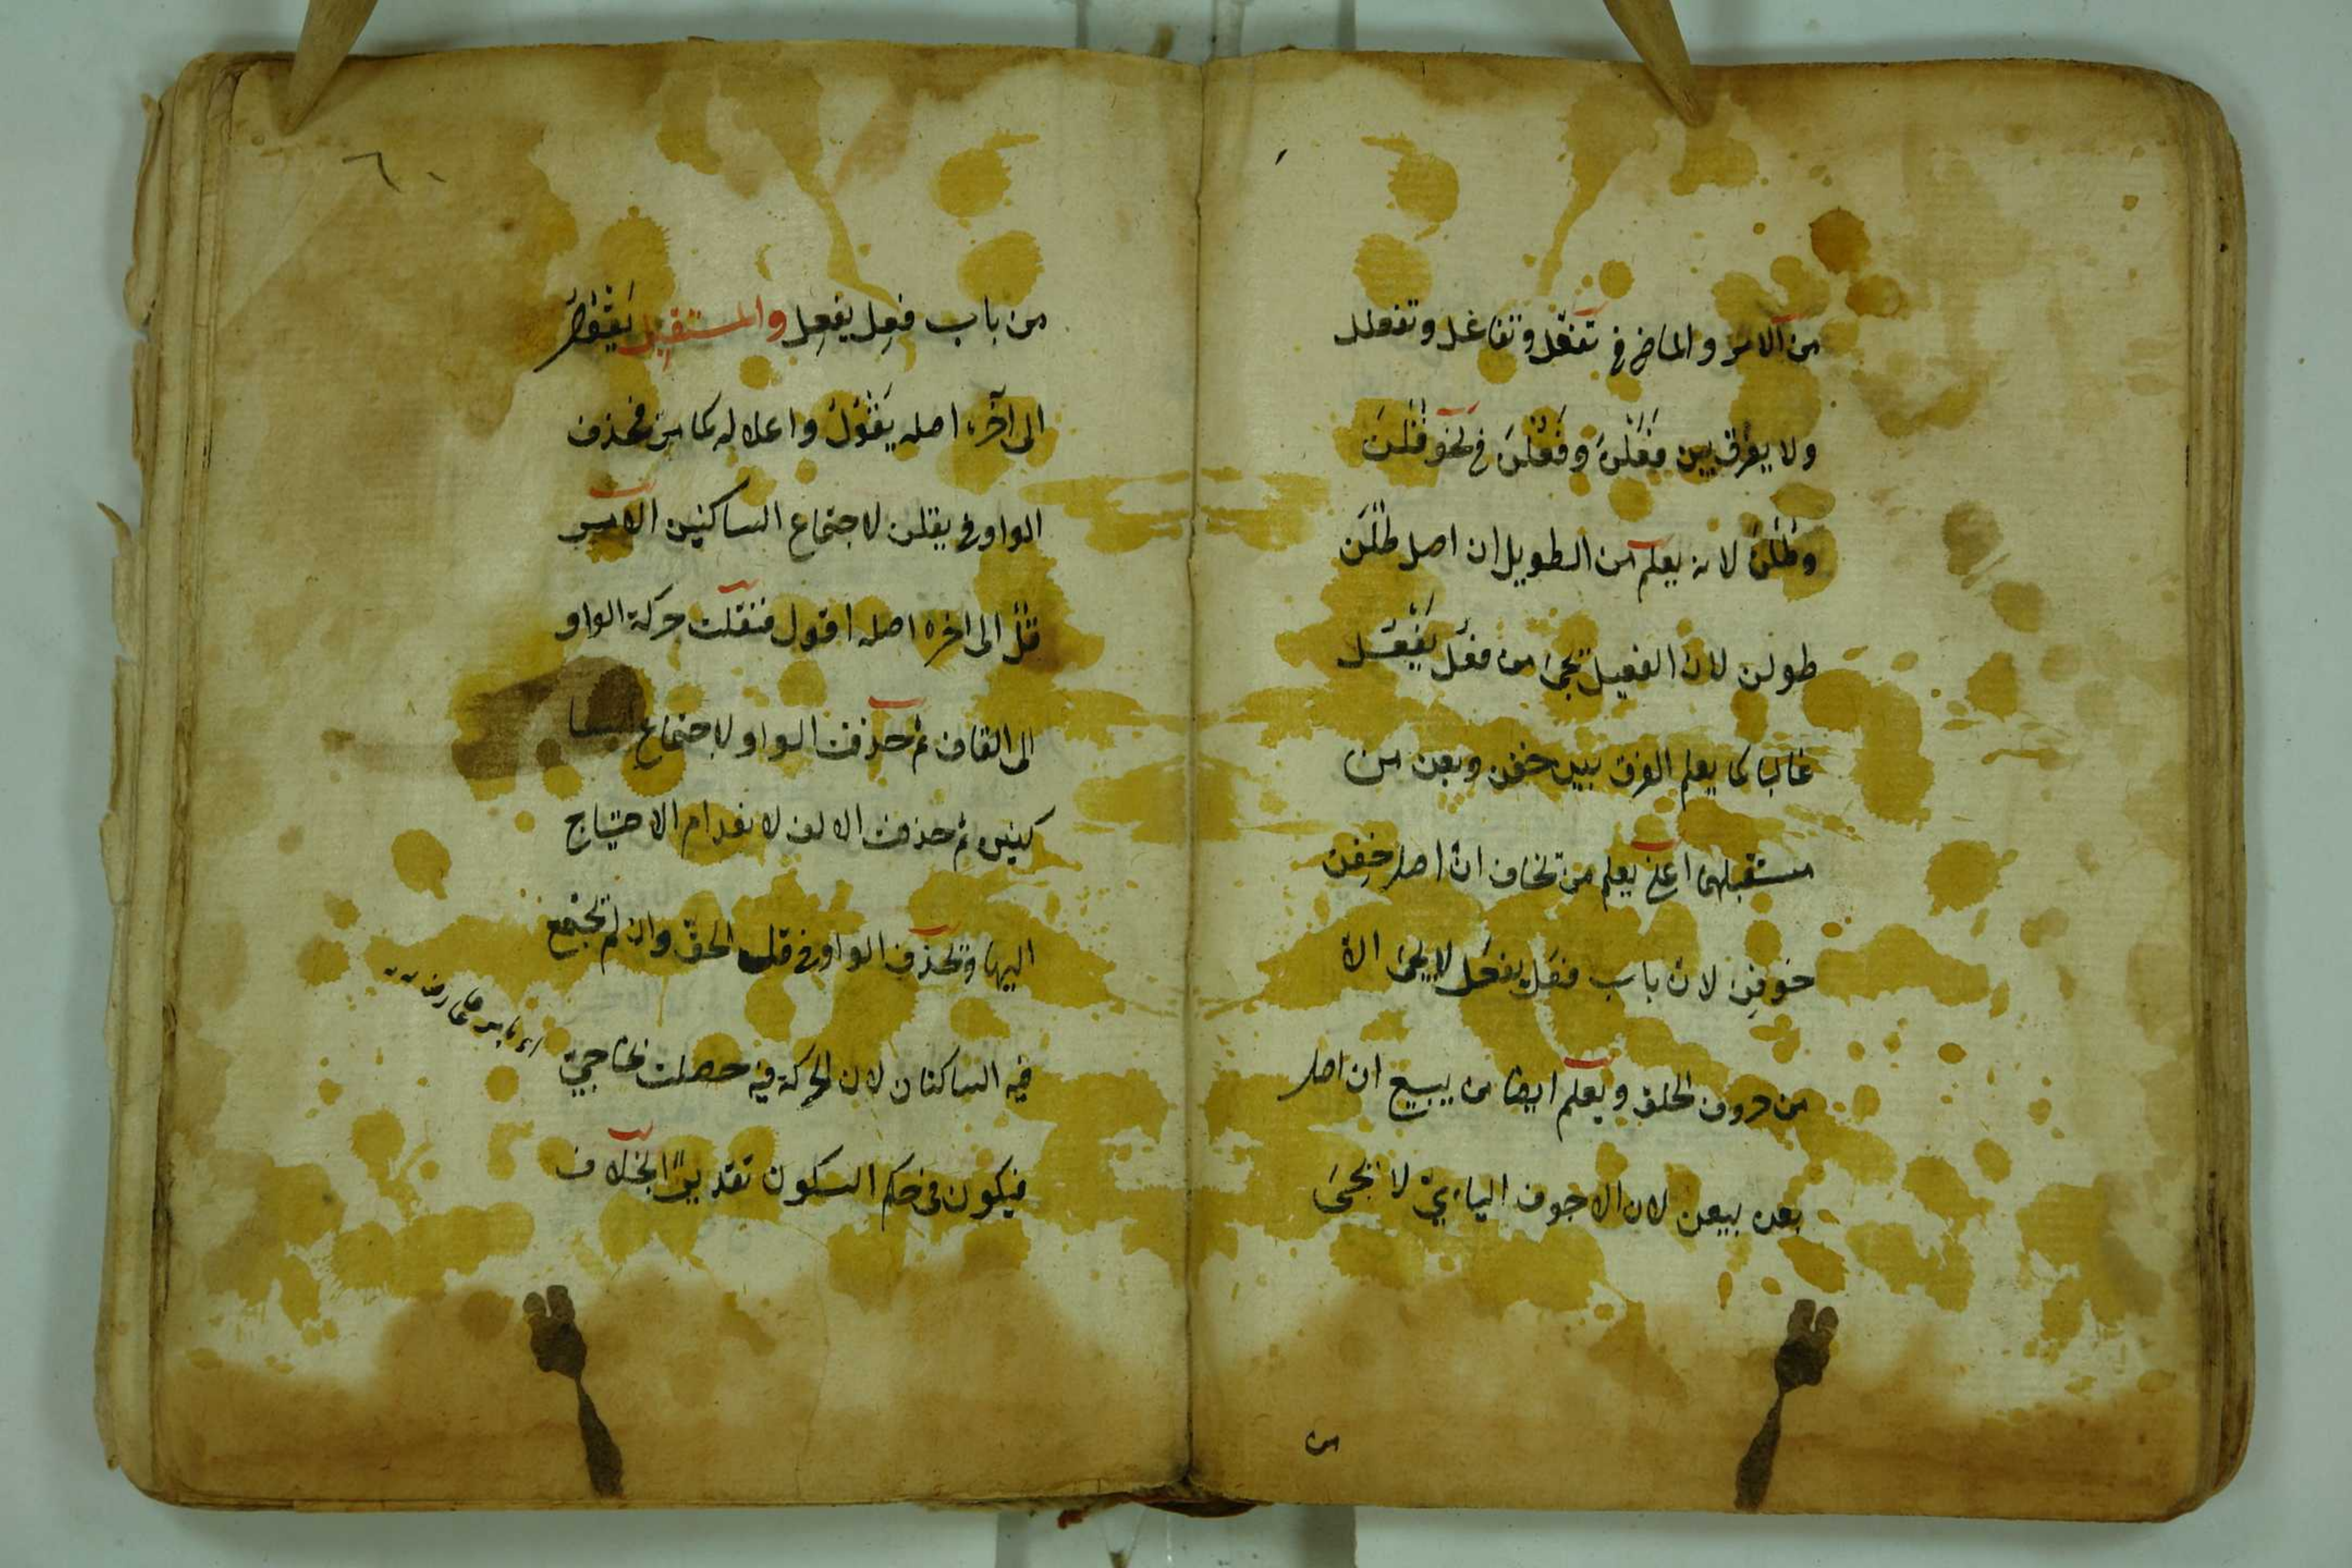 من الامر والماضى فى تَفَعَّلَ وتفاعل وتفعلل
ولا يفرق بين فَعَلْنَ وفَعُلْنَ فى نحو قُلْنَ
وطُلْنَ لانه يعلم من الطويل ان اصل طُلْنَ
طولن لان الفعيل يجئ من فعُل يَفْعُل
غالبا كما يعلم الفرق بين خفن وبعن من
مستقبلهما اعنى يعلم من تخاف ان اصل خِفن
خوفِن لان باب فعَل يفعَل لا يجئ الا
من حروف الحلق ويعلم ايضا من يبيع ان اصل
بعن بيعن لان الاجوف اليائىّ لا يجئ
من
٦٠
من باب فعِل يفعِل والمستقبل يَقُولُ
الى آخره اصله يَقْوُلُ واعلاله كما مرّ فحذف
الواو فى يقلن لاجتماع الساكنين الامر
قُلْ الى اخره اصله اقول فنقلت حركة الواو
الى القاف ثم حذفت الواو لاجتماع السا
كنين ثم حذفت الالف لانعدام الاحتياج
اليها وتحذف الواو فى قل الحق وان لم تجتمع
فيه الساكنان لان الحركة فيه حصلت بخاجىّ
فيكون فى حكم السكون تقديرًا بخلاف